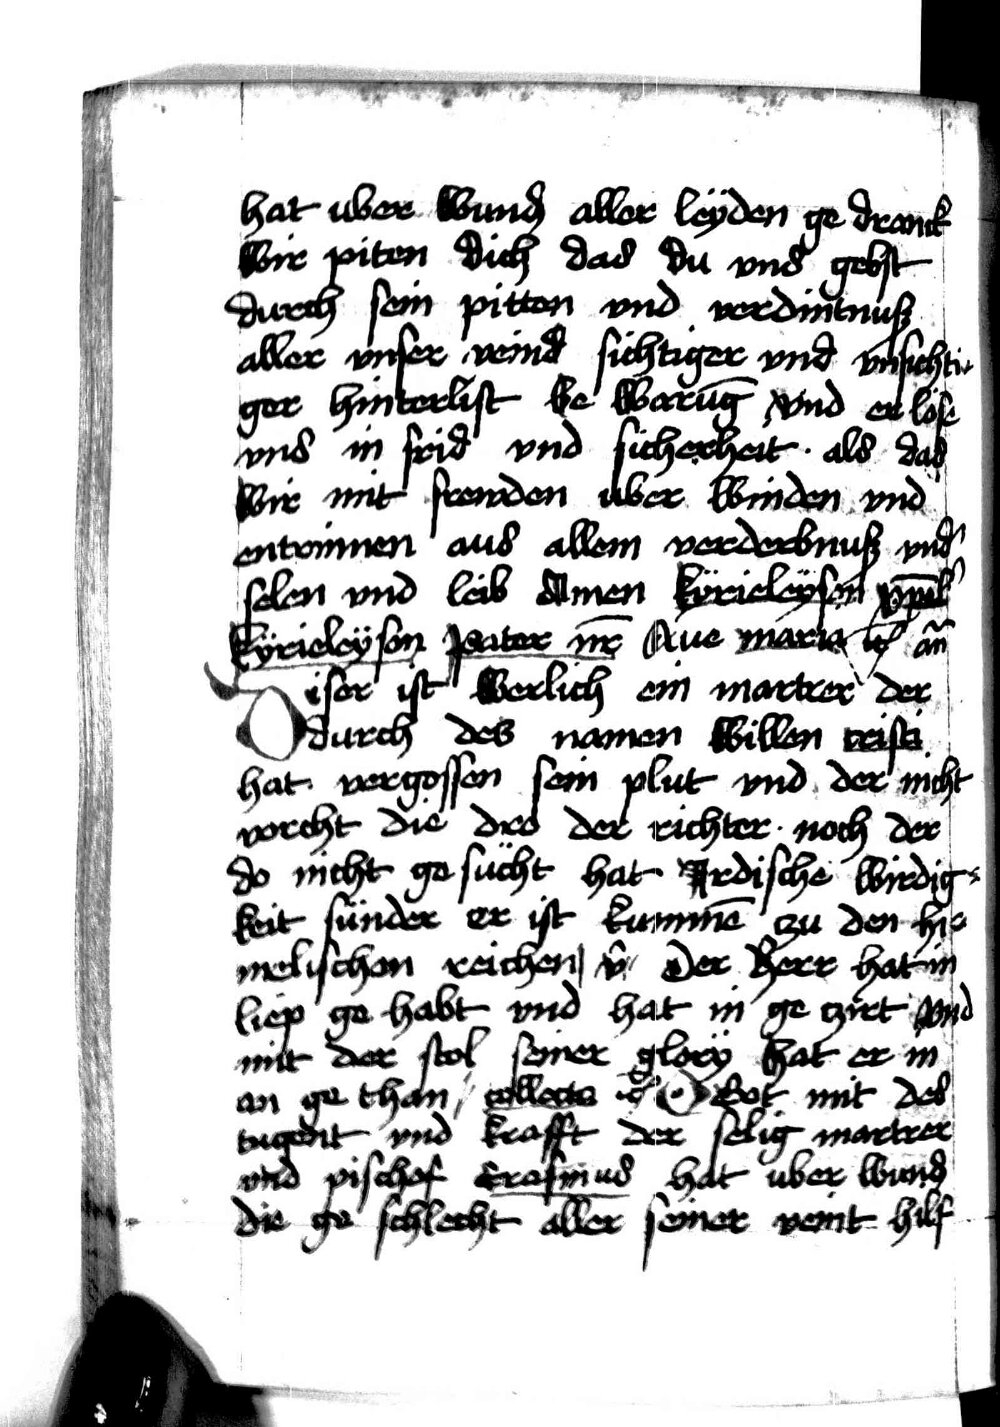 hat uber wund aller leÿden ge dranck
wir piten dich das du vns gebst
durch sein pitten vnd verdintnuß
aller vnser veind sichtiger vnd vnsichti-
ger hinterlist be warūg vnd er löse
vns in frid vnd sicherheit · als das
wir mit frewden uber winden vnd
entrinnen aus allem verderbnuß vnd
selen vnd leib Amen kÿrieleÿson
kÿrieleÿson pater nr̄ Aue maria
iser ist werlich ein martrer der
durch des namen willen cristi
hat vergossen sein plut vnd der nicht
vorcht die dro der richter · noch der
do nicht ge sücht hat Irdische wirdig-
keit sunder er ist kummē czu den hi-
melischen reichen v̄ Der herr hat in
liep ge habt vnd hat in ge czirt vnd
mit der stol seiner glorÿ hat er in
an ge than collecta Got mit des
tugent vnd krafft der selig martrer
vnd pischof Erasmus hat uber wund
die ge schlecht aller seiner veint hilf